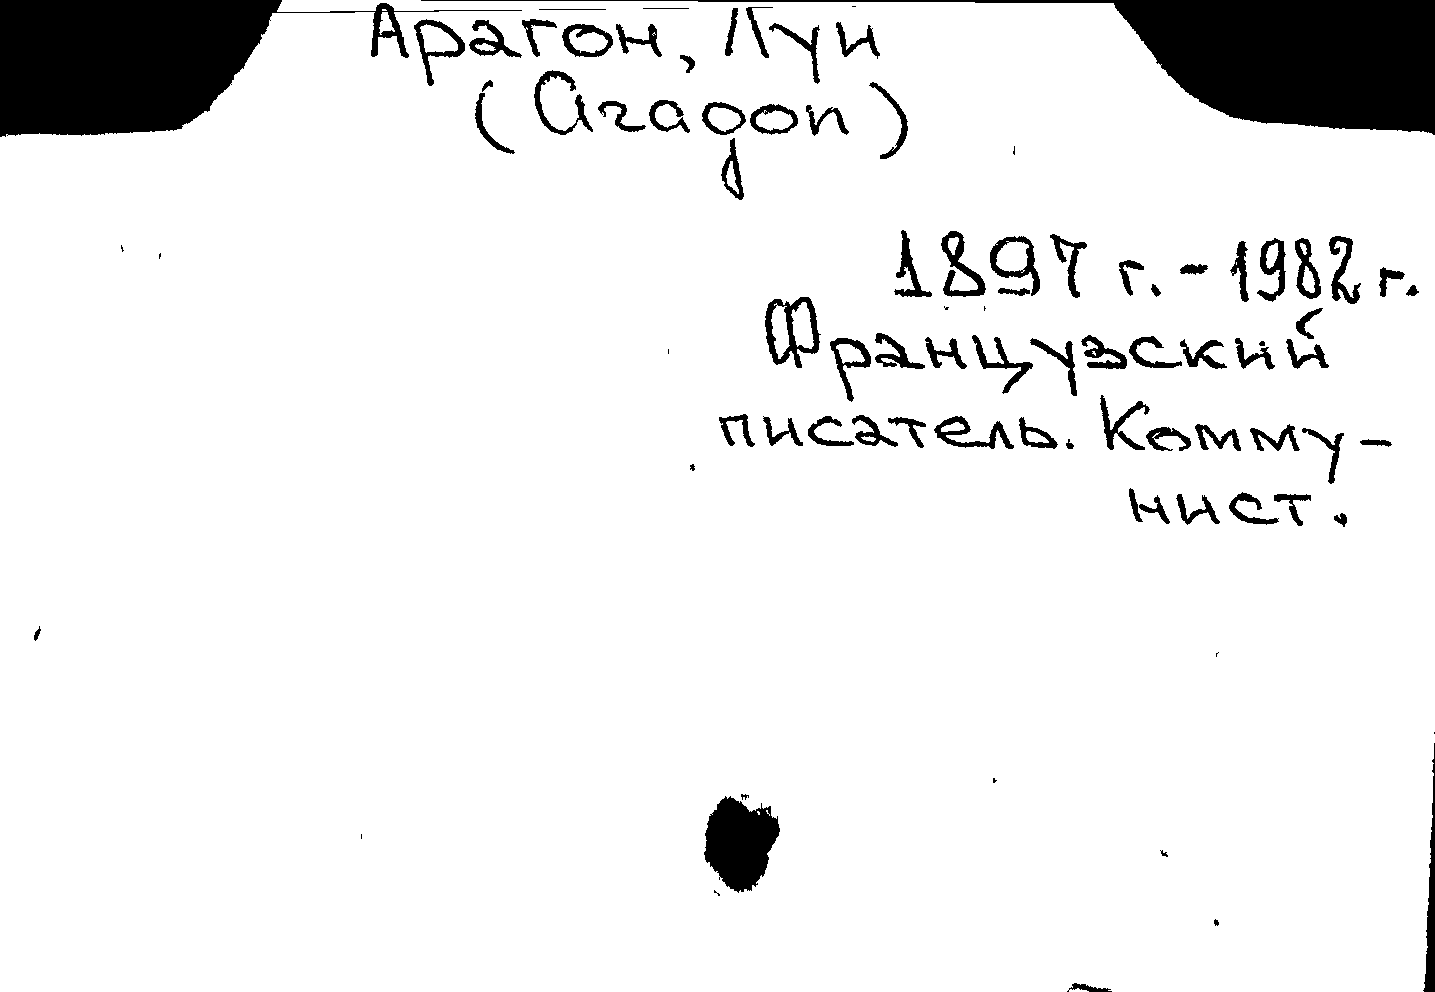 Арагон, Луи
(Aragon)
1897 г. - 1982 г.
Французский
писатель. Комму-
нист.